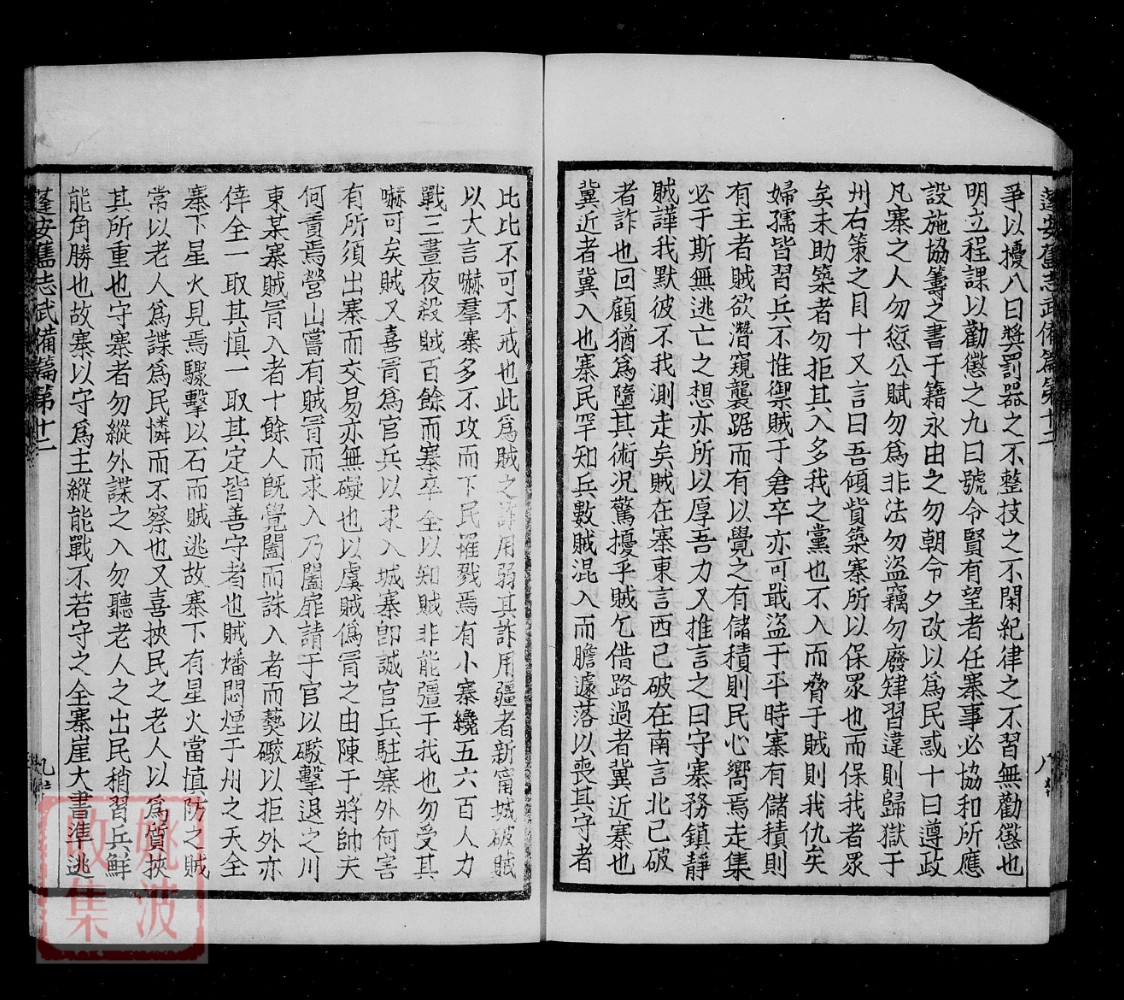 爭以擾八曰奬罰器之不整技之不閑紀律之不習無勸懲也
明立程課以勸懲之九曰號令賢有望者任寨事必協和所應
設施協籌之書于籍永由之勿朝令夕改以爲民惑十曰遵政
凡寨之人勿愆公賦勿爲非法勿盜竊勿廢肄習違則歸獄于
州右策之目十又言曰吾傾貲築寨所以保眾也而保我者眾
矣未助築者勿拒其入多我之黨也不入而脅于賊則我仇矣
婦孺皆習兵不惟禦賊于倉卒亦可戢盜于平時寨有儲積則
有主者賊欲潛窺襲踞而有以覺之有儲積則民心嚮焉走集
必于斯無逃亡之想亦所以厚吾力又推言之曰守寨務鎮靜
賊譁我默彼不我測走矣賊在寨東言西已破在南言北已破
者詐也回顧猶爲隨其術况驚擾乎賊乞借路過者冀近寨也
冀近者冀入也寨民罕知兵數賊混入而膽遽落以喪其守者
蓬安舊志武備篇第十二
八
比比不可不戒也此爲賊之詐用弱其詐用彊者新甯城破賊
以大言嚇羣寨多不攻而下民罹戮焉有小寨纔五六百人力
戰三晝夜殺賊百餘而寨卒全以知賊非能彊于我也勿受其
嚇可矣賊又喜冐爲官兵以求入城寨卽誠官兵駐寨外何害
有所須出寨而交易亦無礙也以虞賊僞冐之由陳于將帥夫
何責焉營山嘗有賊冐而求入乃闔扉請于官以礮擊退之川
東某寨賊冐入者十餘人旣覺闔而誅入者而爇礮以拒外亦
倖全一取其慎一取其定皆善守者也賊燔悶煙于州之天全
寨下星火見焉驟擊以石而賊逃故寨下有星火當慎防之賊
常以老人爲諜爲民憐而不察也又喜挾民之老人以爲質挾
其所重也守寨者勿縱外諜之入勿聽老人之出民稍習兵鮮
能角勝也故寨以守爲主縱能戰不若守之全寨崖大書準逃
蓬安舊志武備篇第十二
九
姚波
收集